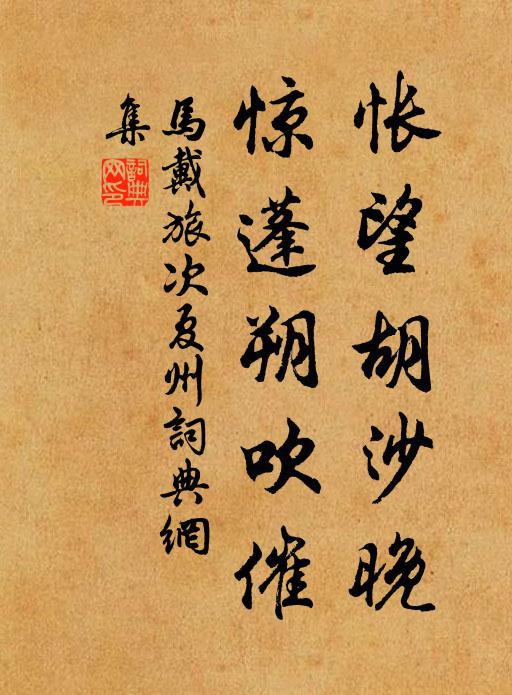 怅望胡沙晚
惊蓬朔吹催
馬戴旅次夏州詞典網
集
詞典
网印